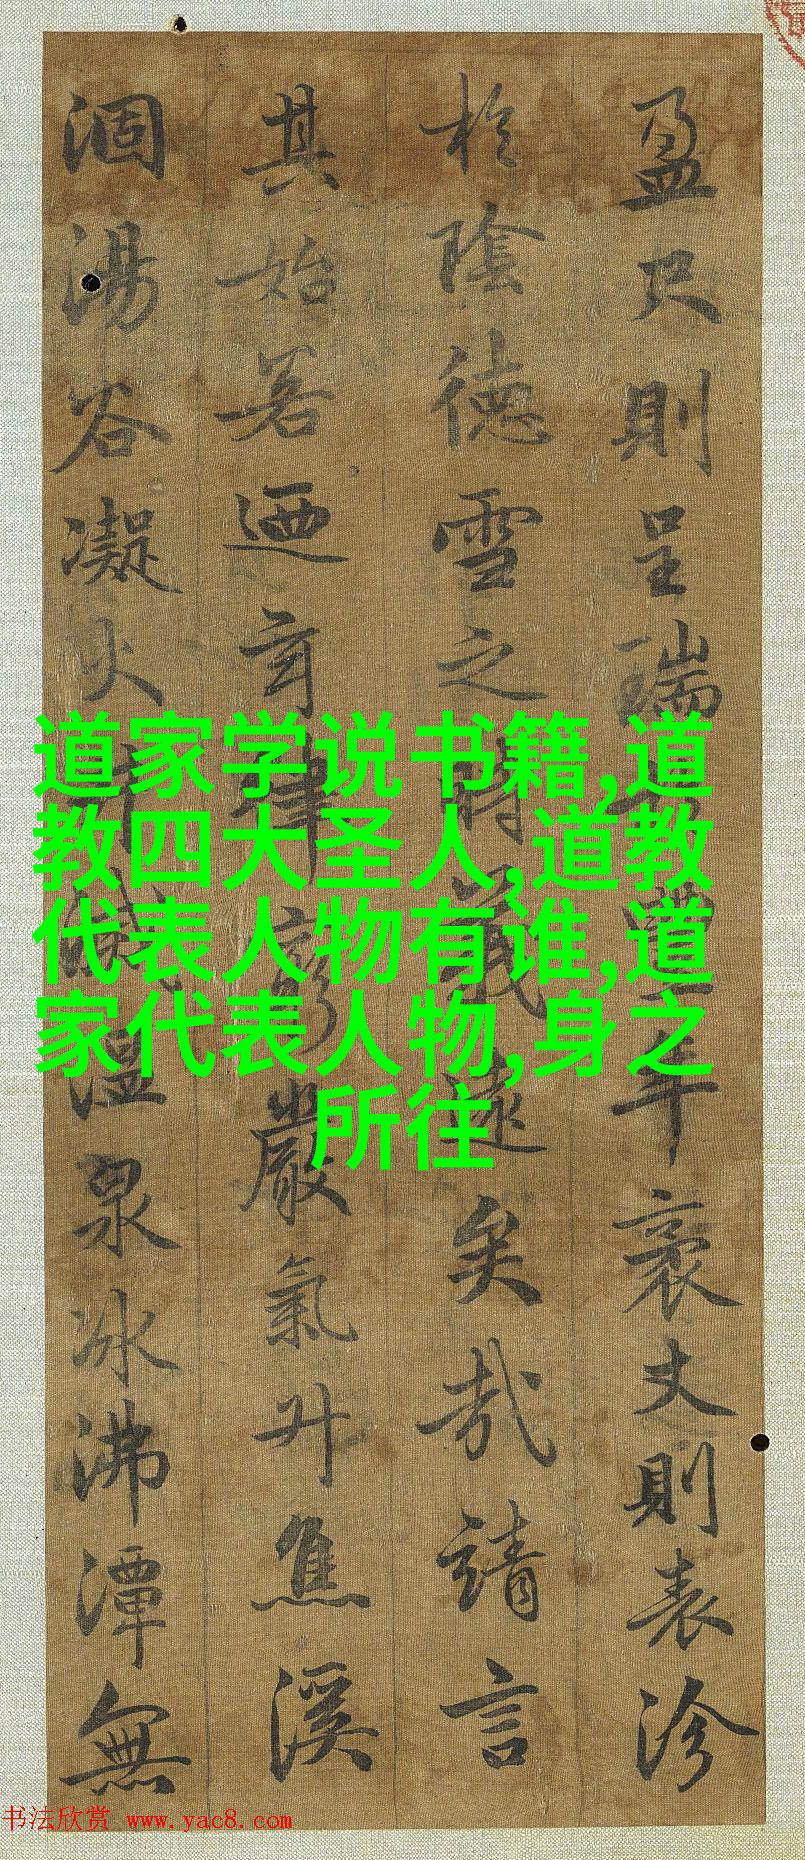 盈尺則呈瑞於豊年袤丈則表沴
於陰德雪之時義遠矣哉請言
其始若迺玄律窮嚴氣升焦溪
涸湯谷凝火井滅溫泉冰沸潭無
道家学说书籍,道
教四大圣人,道教
代表人物有谁,道
家代表人物,身之
所往
书法欣赏 www.yac8.com